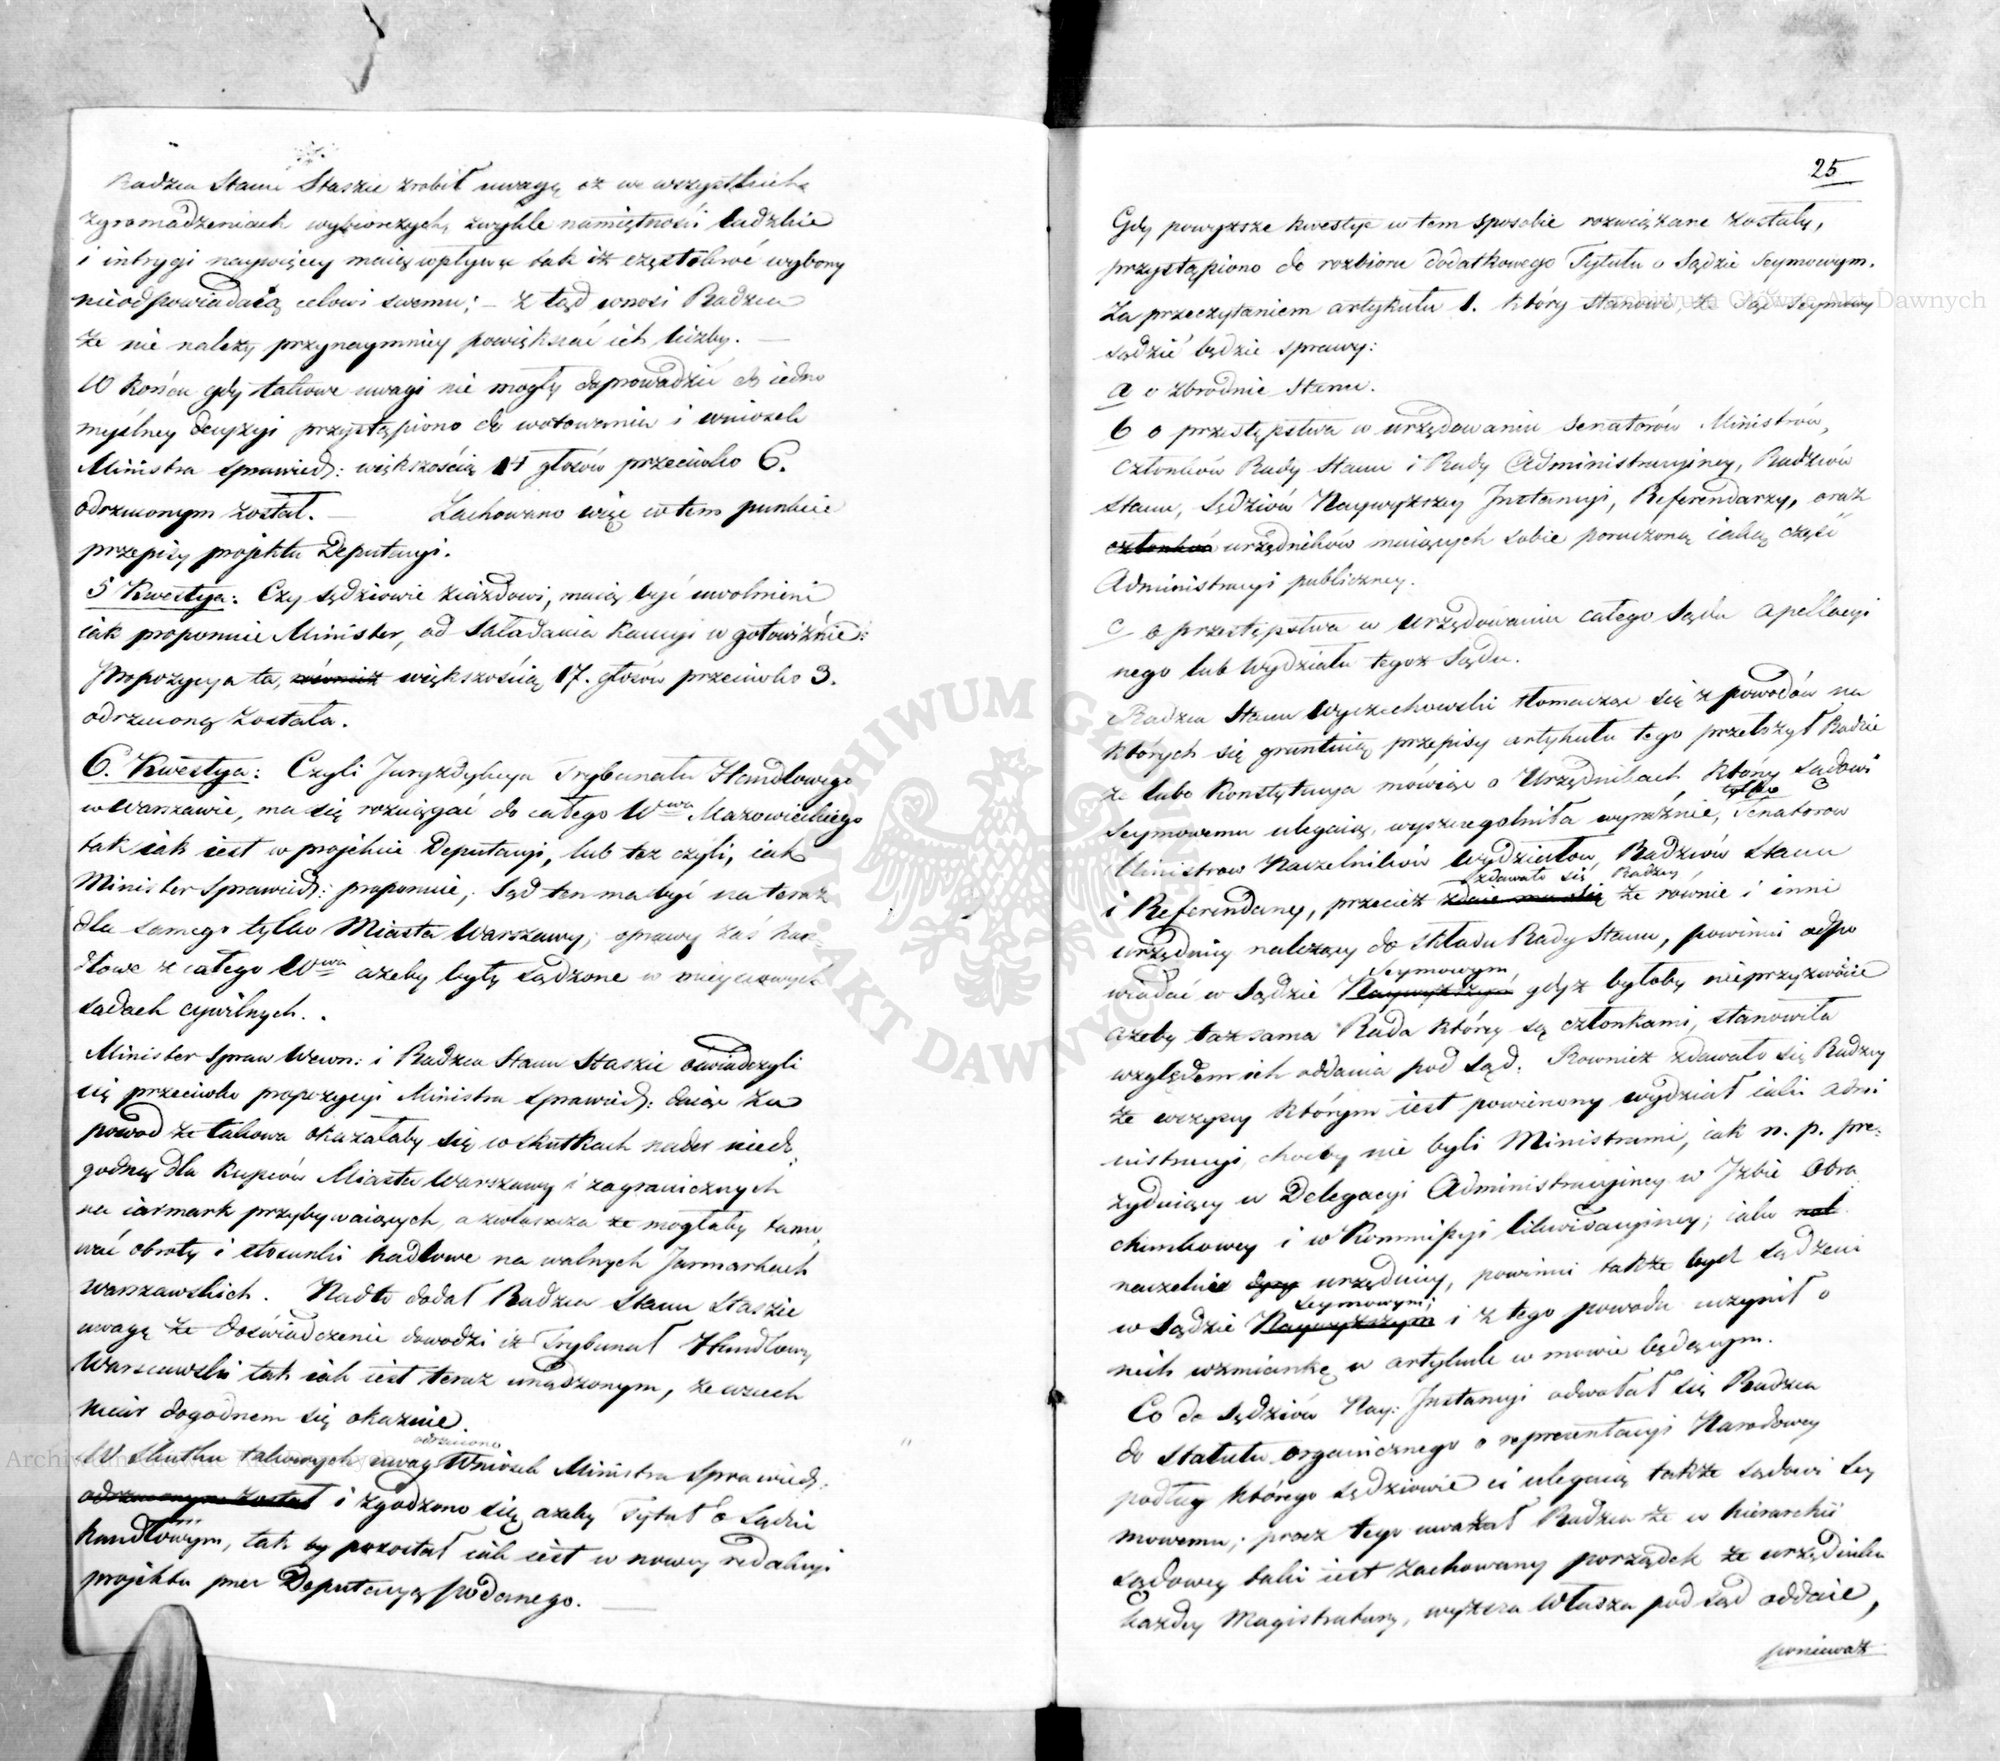 Radzca Stanu Staszic zrobił uwagę że we wszystkich
zgromadzeniach wyborczych, zwykle namiętności ludzkie
i intrygi naywięcey maią wpływu tak iż częstokroć wybory
nieodpowiadaią celowi swemu; – z tąd wnosi Radzca
że nie należy przynaymniey powiększać ich liczby. —
W końcu gdy takowe uwagi nie mogły doprowadzić do iedno
myślney decyzyi przystąpiono do wotowania i wniosek
Ministra Sprawied: większością 14 głosów przeciwko 6.
odrzuconym został. — Zachowano więc w tem punkcie
przepisy projektu Deputacyi.
5 Kwestya: Czy Sędziowie ziazdowi, maią być uwolnieni
iak proponuie Minister, od składania kaucyi w gotowiźnie:
Propozycya ta, również większością 17. głosów przeciwko 3.
odrzuconą została.
6. Kwestya: Czyli Juryzdykcya Trybunału Handlowego
w Warszawie, ma się rozciągać do całego Wwa Mazowieckiego
tak iak iest w projekcie Deputacyi, lub też czyli, iak
Minister Sprawied: proponuie, Sąd ten ma być na teraz
dla samego tylko Miasta Warszawy; sprawy zaś han-
dlowe z całego Wwa ażeby były sądzone w mieyscowych
sadach cywilnych.
Minister Spraw Wewn: i Radzca Stanu Staszic oświadczyli
się przeciwko propozycyi Ministra Sprawied: daiąc za
powod że takowa okazałaby się w skutkach nader niedo
godną dla kupców Miasta Warszawy i zagranicznych
na iarmark przybywaiących, a zwłaszcza że mogłaby tamo
wać obroty i stosunki hadlowe na walnych Jarmarkach
Warszawskich. Nadto dodał Radzca Stanu Staszic
uwagę że doświadczenie dowodzi iż Trybunał Handlowy
Warszawski tak iak iest teraz urządzonym, ze wszech
miar dogodnem się okazuie.
odrzucono
W skutku takowych uwag Wniosek Ministra Sprawied:
odrzuconym został i zgodzono się ażeby Tytuł o Sądzie
handlowym, tak by pozostał iak iest w nowey redakcyi
projektu przez Deputacyą podanego. —
25
Gdy powyższe kwestye w tem sposobie rozwiązane zostały,
przystąpiono do rozbioru dodatkowego Tytułu o Sądzie Seymowym.
Za przeczytaniem artykułu 1. który stanowi, że Sąd Seymowy
sądzić będzie sprawy:
a o zbrodnie Stanu.
b o przestępstwa w urzędowaniu Senatorów Ministrów,
Członków Rady Stanu i Rady Administracyiney, Radzców
Stanu, Sędziów Naywyższey Instancyi, Referendarzy, oraz
członków urzędników maiących sobie poruczoną iaką część
Administracyi publiczney.
c o przestępstwa w urzędowaniu całego Sądu apellacyi
nego lub Wydziału tegoż Sądu.
Radzca Stanu Wyczechowski tłomacząc się z powodów na
których się gruntuią przepisy artykułu tego przełożył Radzie
że lubo Konstytucya mówiąc o Urzędnikach którzy Sądowi
tylko
Seymowemu ulegaią, wyszczególniła wyraźnie, Senatorow
Ministrow Naczelników Wydziałów, Radzców Stanu
zdawało się Radzcy
i Referendarzy, przecież zdaie mu się że równie i inni
urzędnicy należący do składu Rady Stanu, powinni odpo
Seymowym
wiadać w Sądzie Naywyższym gdyż byłoby nieprzyzwoicie
ażeby taż sama Rada którey są członkami, stanowiła
względem ich oddania pod Sąd. Rownież zdawało się Radzcy
że wszyscy którym iest powierzony wydział iaki admi
nistracyi, choćby nie byli Ministrami, iak n. p. pre-
zyduiący w Delegacyi Administracyiney w Izbie Obra
chunkowey i w Kommissyi likwidacyiney; iako nal
naczelnie urzędnicy, powinni także bydź sądzeni
Seymowym;
w Sądzie Naywyższym i z tego powodu uczynił o
nich wzmiankę w artykule w mowie będącym.
Co do Sędziów Nay: Instancyi odwołał się Radzca
do Statutu organicznego o reprezentacyi Narodowey
podług którego Sędziowie ci ulegaią także Sądowi Sey
mowemu; procz tego uważał Radzca że w hierarchii
sądowey taki iest zachowany porządek że urzędnika
każdey Magistratury, wyższa Władza pod Sąd oddaie,
ponieważ